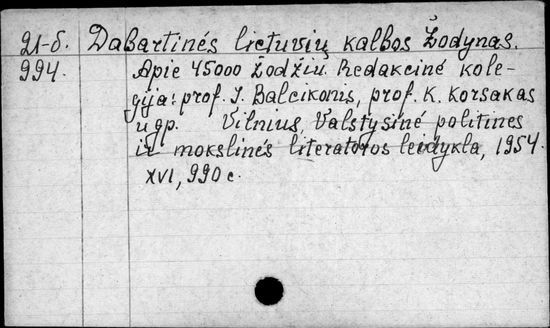 21-б. Dabartinés lietuvių kalbos žodynas.
994. Apie 45000 žodžiu. Redakciné kole-
gija: prof. J. Balcikonis, prof. K. Korsakas
и др. Vilnius, Valstysiné politines
ir mokslinés literatoros leidykla, 1954.
XVI, 990 с.